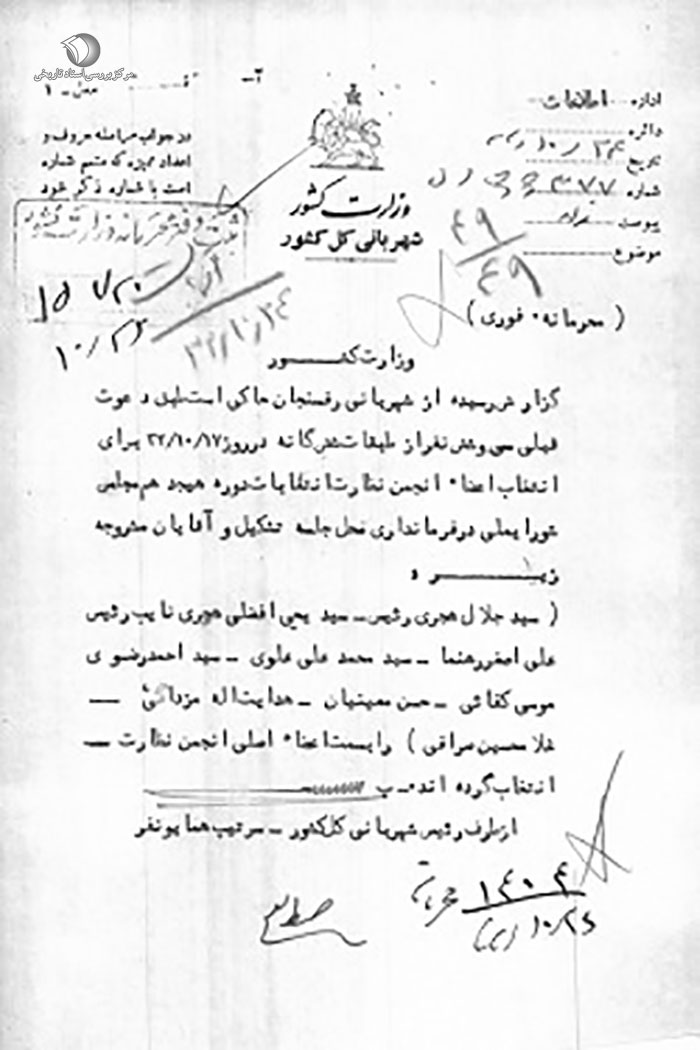 مرکز بررسی اسناد تاریخی
اداره اطلاعات
دائره
تاریخ
شماره
پیوست
موضوع
در جواب مراسله حروف و
اعداد ممیزه که منضم شماره
است با شماره ذکر شود
وزارت کشور
شهربانی کل کشور
۴۹
۴۹
۳۲/۱۰/۲۴
( محرمانه ٠ فوری )
وزارت کشور
گزارش رسیده از شهربانی رفسنجان حاکی است طبق دعوت
قبلی سی و شش نفر از طبقات شش گانه در روز ۳۲/۱۰/۱۷ برای
انتخاب اعضاء انجمن نظارت انتخابات دوره هیجدهم مجلس
شورایملی در فرمانداری محل جلسه تشکیل و آقایان مشروحه
زیر
( سید جلال هجری رئیس ــ سید یحیی افضلی هجری نایب رئیس
علی اصغر رهنما ــ سید محمد علی علوی ــ سید احمد رضوی
موسی کفائی ــ حسن معینیان ــ هدایت اله
غلامحسین عراقی ) را بسمت اعضاء اصلی انجمن نظارت ــ
انتخاب کرده اند
از طرف رئیس شهربانی کل کشور ــ سرتیپ همایونفر
۱۴۰۴